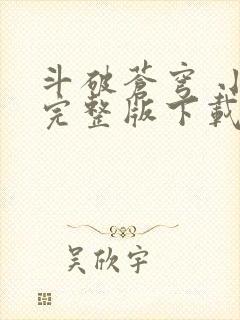 斗破苍穹
完整版下载
吴欣宇